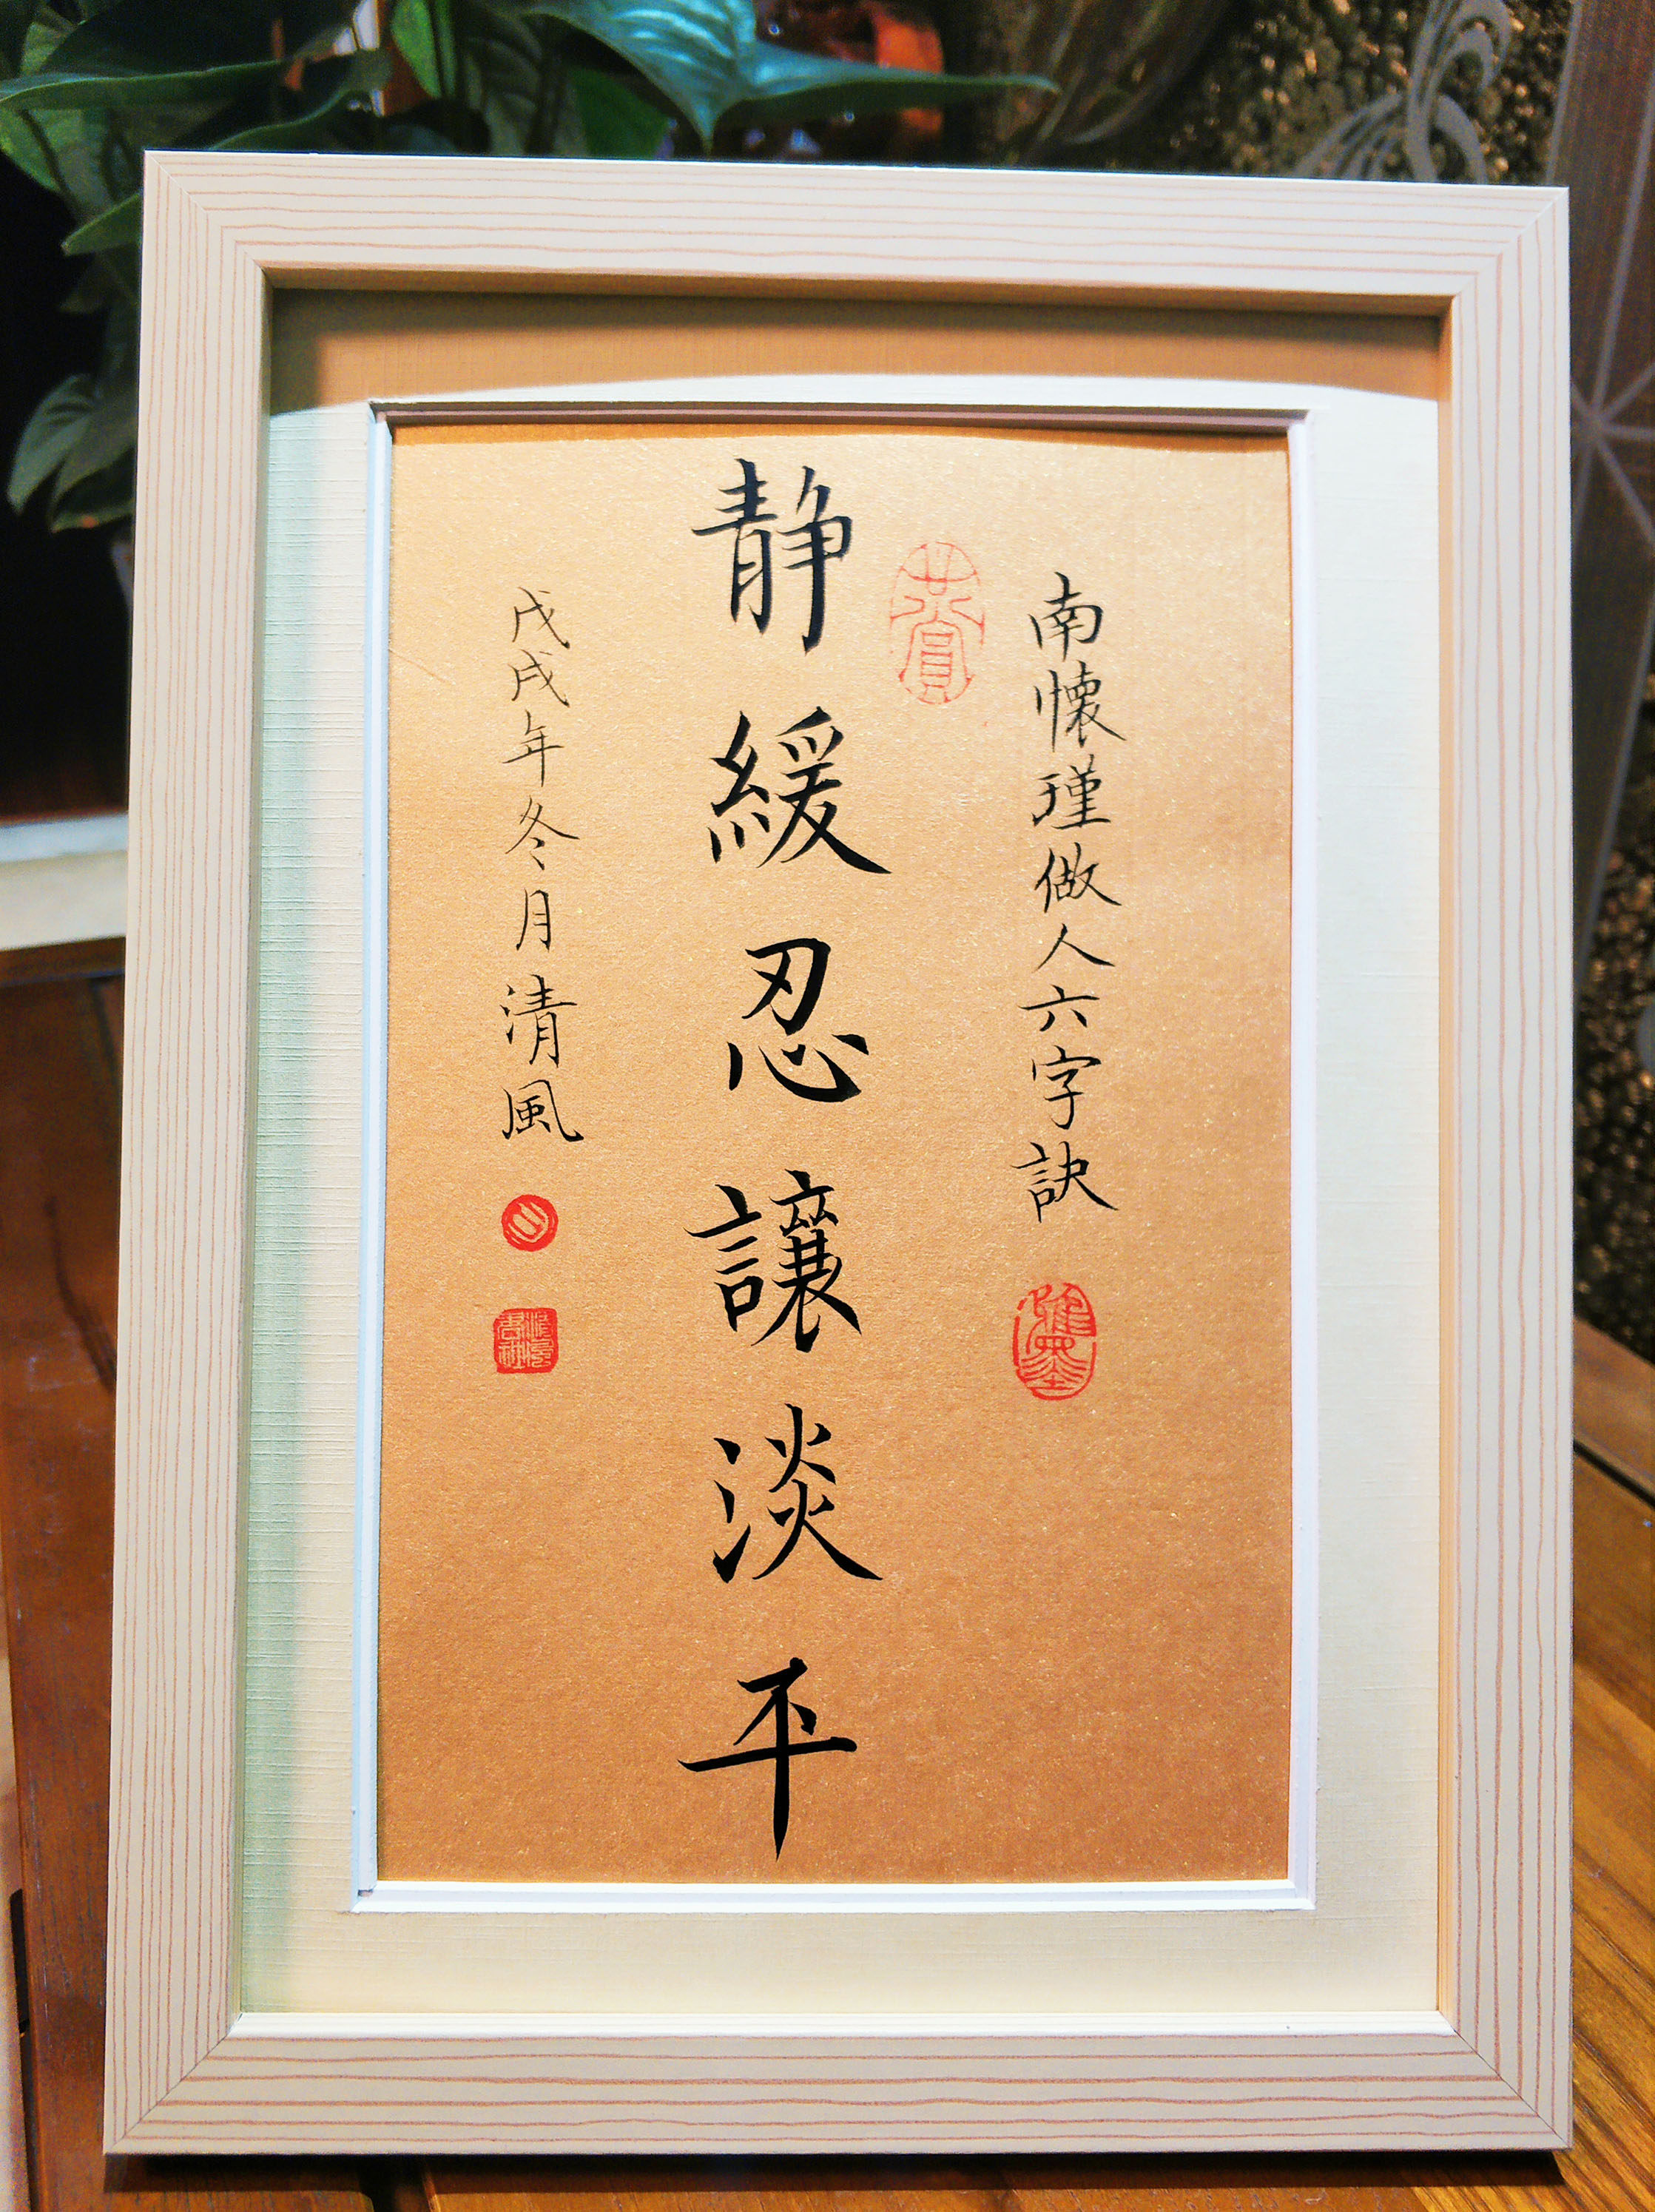 南懷瑾做人六字訣
共賞
雅墨
靜緩忍讓淡平
戊戌年冬月清風